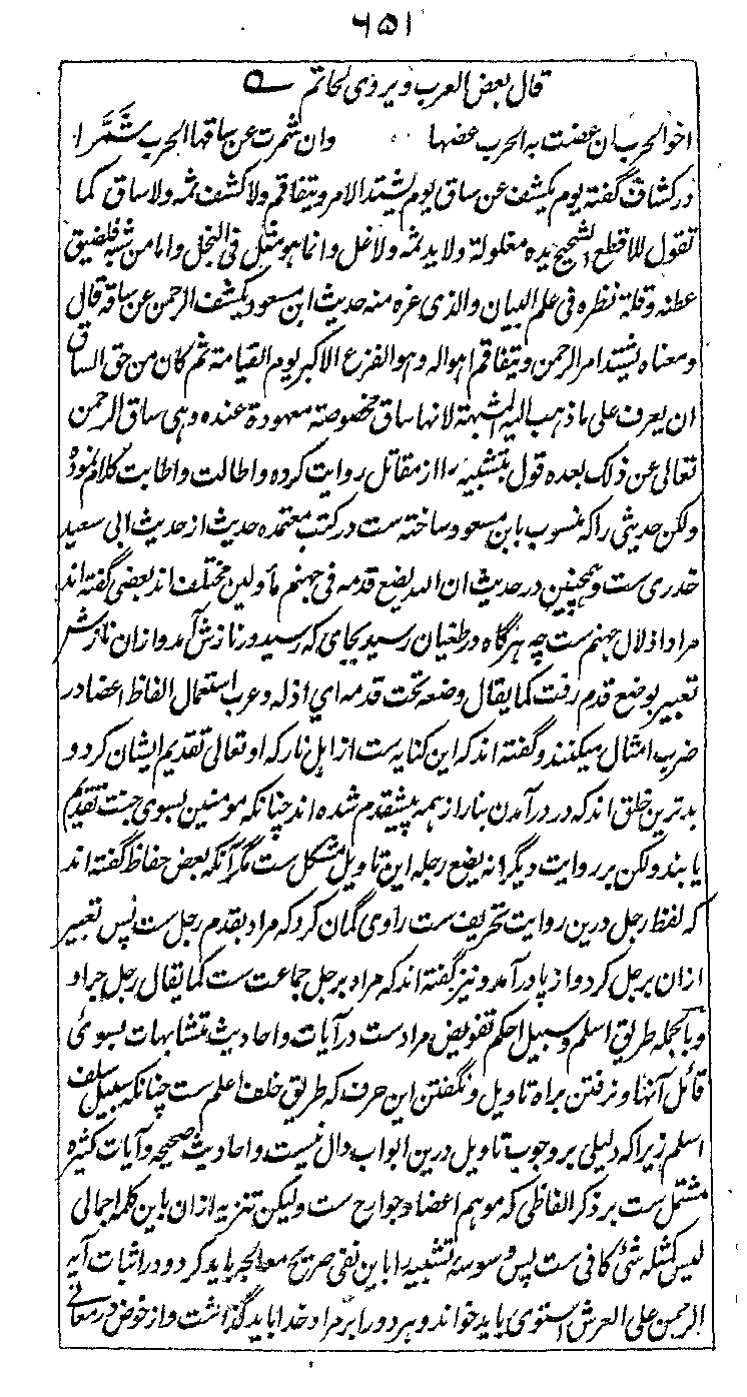 ۶۵۱
قال بعض العرب ویروی لحاتم
اخو الحرب ان عضت به الحرب عضها وان شمرت عن ساقها الحرب شمرا
در کشاف گفته یوم یکشف عن ساق یوم یشتد الامر ویتفاقم ولا کشف ثمه ولا ساق کما
تقول للاقطع الشحیح یده مغلولة ولا ید ثمه ولا غل وانما هو مثل فی البخل واما من شبه فلضیق
عطنه وقلة نظره فی علم البیان والذی غره منه حدیث ابن مسعود یکشف الرحمن عن ساقه قال
ومعناه یشتد امر الرحمن ویتفاقم اهواله وهو الفزع الاکبر یوم القیامة ثم کان من حق الساق
ان یعرف علی ما ذهب الیه المشبهة لانها ساق مخصوصة معهودة عنده وهی ساق الرحمن
تعالی عن ذلک بعده قول بتشبیه را از مقاتل روایت کرده واطالت واطابت کلام نموده
ولکن حدیثی را که منسوب بابن مسعود ساخته ست در کتب معتمده حدیث از حدیث ابی سعید
خدری ست وهمچنین در حدیث ان الله یضع قدمه فی جهنم مأولین مختلف اند بعضی گفته اند
مراد اذلال جهنم ست چه هرگاه در طغیان رسید بجای که رسید ور نازش آمد و ازان نازش
تعبیر بوضع قدم رفت کما یقال وضعه تحت قدمه ای اذله وعرب استعمال الفاظ اعضا در
ضرب امثال میکنند وگفته اند که این کنایه ست از اهل نار که او تعالی تقدیم ایشان کرد و
بدترین خلق اند که در درآمدن بنار از همه پیشقدم شده اند چنانکه مومنین بسوی جنت تقدیم
یابند ولکن بر روایت دیگر انه یضع رجله این تاویل مشکل ست مگر آنکه بعض حفاظ گفته اند
که لفظ رجل درین روایت تحریف ست راوی گمان کرد که مراد بقدم رجل ست پس تعبیر
ازان برجل کرد و از پا درآمد ونیز گفته اند که مراد برجل جماعت ست کما یقال رجل جراد
وبالجمله طریق اسلم وسبیل احکم تفویض مراد ست در آیات واحادیث متشابهات بسوئ
قائل آنها ونرفتن براه تاویل ونگفتن این حرف که طریق خلف اعلم ست چنانکه سبیل سلف
اسلم زیرا که دلیلی بر وجوب تاویل درین ابواب دال نیست واحادیث صحیحه وآیات کثیره
مشتمل ست بر ذکر الفاظی که موهم اعضا وجوارح ست ولیکن تنزیه ازان باین کلمه اجمالی
لیس کمثله شئ کافی ست پس وسوسه تشبیه را باین نفی صریح معالجه باید کرد و در اثبات آیه
الرحمن علی العرش استوی باید خواند وهر دو را بر مراد خدا باید گذاشت واز خوض در معانی